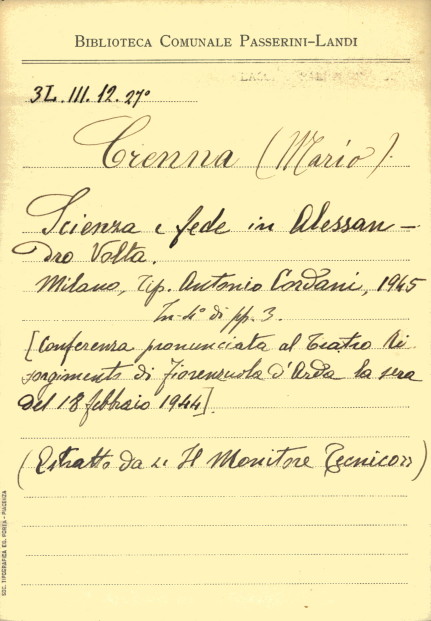 BIBLIOTECA COMUNALE PASSERINI-LANDI
3L. III. 12. 27°
Crenna (Mario).
Scienza e fede in Alessan-
dro Volta.
Milano, Tip. Antonio Cordani, 1945
In-4° di pp. 3.
[Conferenza pronunciata al Teatro Ri
sorgimento di Fiorenzuola d'Arda la sera
del 18 febbraio 1944].
(Estratto da « Il Monitore Tecnico »)
SOC. TIPOGRAFICA ED. PORTA - PIACENZA